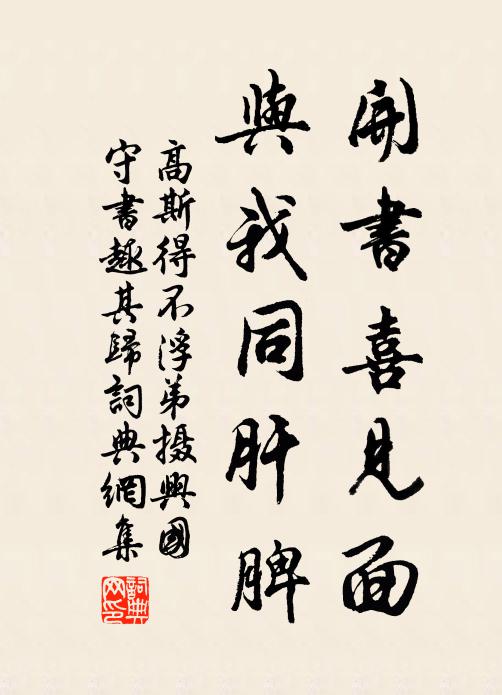 開書喜見面
與我同肝脾
高斯得不浮弟摄興國
守書趣其歸詞典網集
詞典网印